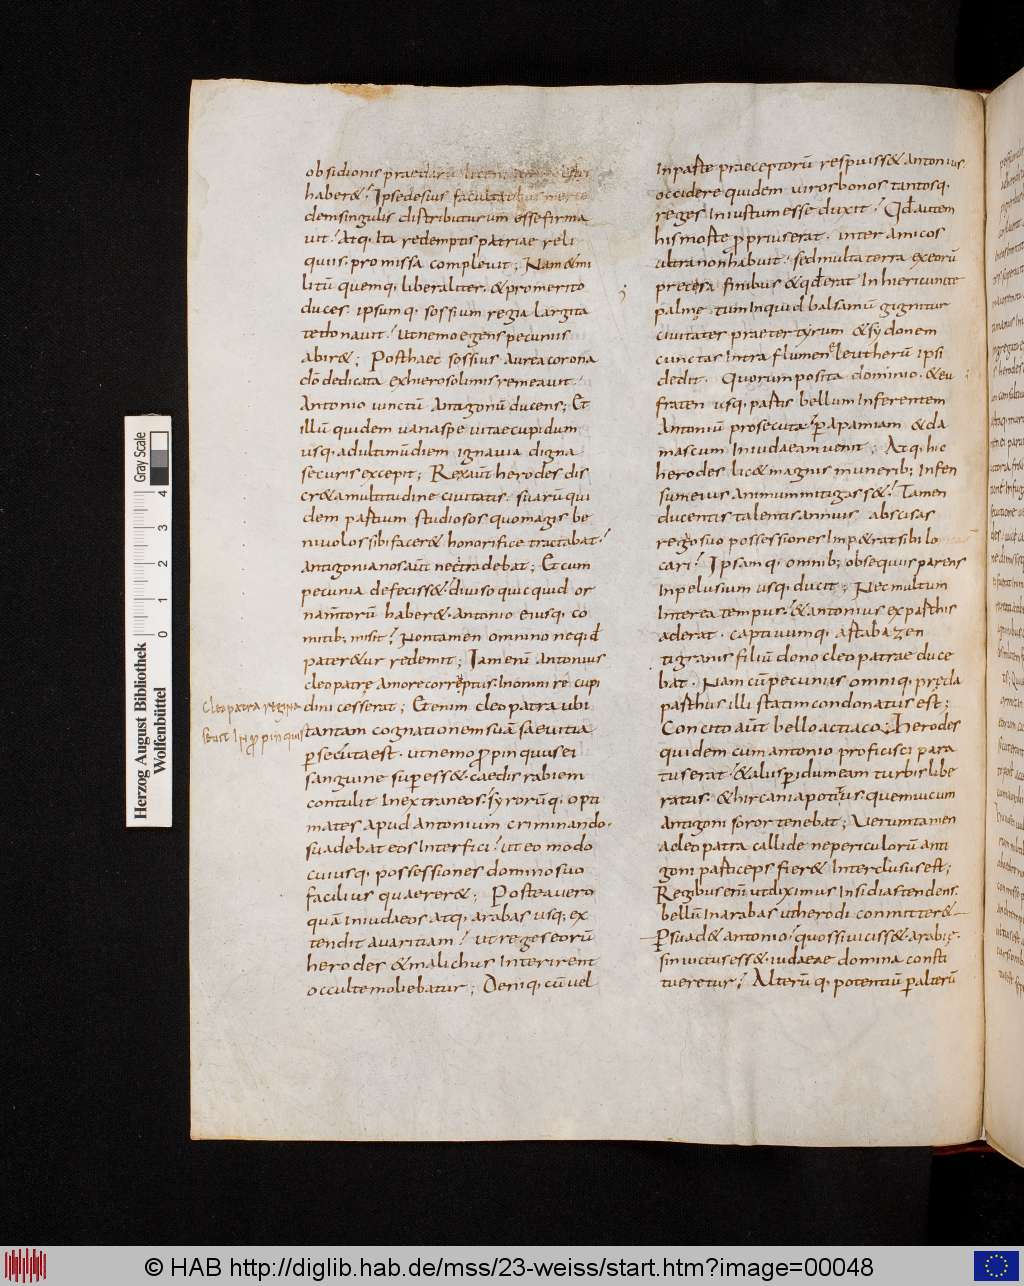 obsidionis praedarū licen
haber&; Ipse de suis facultatibus merce
dem singulis distributurum esse firma
uit; Atq; Ita redemptis patriae reli
quiis, promissa compleuit; Nam & mi
litū quemq; liberaliter, & pro merito
duces, ipsumq; sossium regia largita
te donauit; ut nemo egens pecuniis
abir&; Posthaec sossius aurea corona
dō dedicata ex hierosolimis remeauit.
Antonio uinctū Antigonū ducens; Et
illū quidem uana spe uitae cupidum
usq; ad ultimū diem ignauia digna
securis excepit; Rex aūt herodes dis
cr&a multitudine ciuitatis, suarū qui
dem partium studiosos quo magis be
niuolos sibi facer& honorifice tractabat;
antigonianos aūt nec tradebat; Et cum
pecunia defeciss& diuiso quicquid or
nam̄torū haber&, Antonio eiusq; co
mitib; misit; Non tamen omnino neqid
pater&ur redemit; Iam enī Antonius
cleopatrę amore correptus, In omni re cupi
dini cesserat; Etenim cleopatra ubi
tantam cognationem suā saeuitia
psecuta est, ut nemo ppinquus ei
sanguine supess&, caedis rabiem
contulit In extraneos; Syrorūq; opti
mates apud antonium criminando,
suadebat eos Interfici; ut eo modo
cuiusq; possessiones domino suo
facilius quaerer&; Postea uero
quā In iudaeos atq; arabas usq; ex
tendit auaritiam; ut reges eorū
herodes & malichus Interirent
occulte moliebatur; Deniq; cū uel
Cleopatra regina
seuit I ppinquis
In parte praeceptorū respuiss& Antonius
occidere quidem uiros bonos tantosq;
reges Iniustum esse duxit; Qd̄ autem
his morte p prius erat, inter amicos
ultra non habuit, sed multa terra ex eorū
precęsa finibus & qd̄ erat In hiericunte
palmę, tum Inquid balsamū gignitur
ciuitates praeter tyrum & sydonem
cunctas Intra flumen eleutherū ipsi
dedit. Quorum posita dominio, & eu
fraten usq; partis bellum Inferentem
Antoniū prosecuta, p Apamiam & da
mascum In iudaeam uenit; Atq; hic
herodes lic& magnis munerib; Infen
sum eius animum mitigass&; Tamen
ducentis talentis annuis abscisas
regno suo possessiones Imp&rat sibi lo
cari; Ipsamq; omnib; obsequiis parens
In pelusium usq; ducit; Nec multum
Interea tempus, & antonius ex parthis
aderat, captiuumq; artabazen
tigranis filiū dono cleopatrae duce
bat. Nam cū pecuniis omniq; pręda
parthus illi statim condonatus est;
Concito aūt bello actiaco, herodes
quidem cum antonio proficisci para
tus erat, & aliis p idumeam turbis libe
ratus, & hircania potitus quem iucum
antigoni soror tenebat; Uerum tamen
a cleopatra callide ne periculorū anti
goni particeps fier& Interclusus est;
Regibus enī ut diximus Insidias tendens
bellū In arabas ut herodi committer&
psuad& antonio, quo si uiciss& arabię,
sin uictus ess& iudaeae domina consti
tueretur; Alterūq; potentiū p alterū
Herzog August Bibliothek
Wolfenbüttel
Gray Scale
0 1 2 3 4
© HAB http://diglib.hab.de/mss/23-weiss/start.htm?image=00048